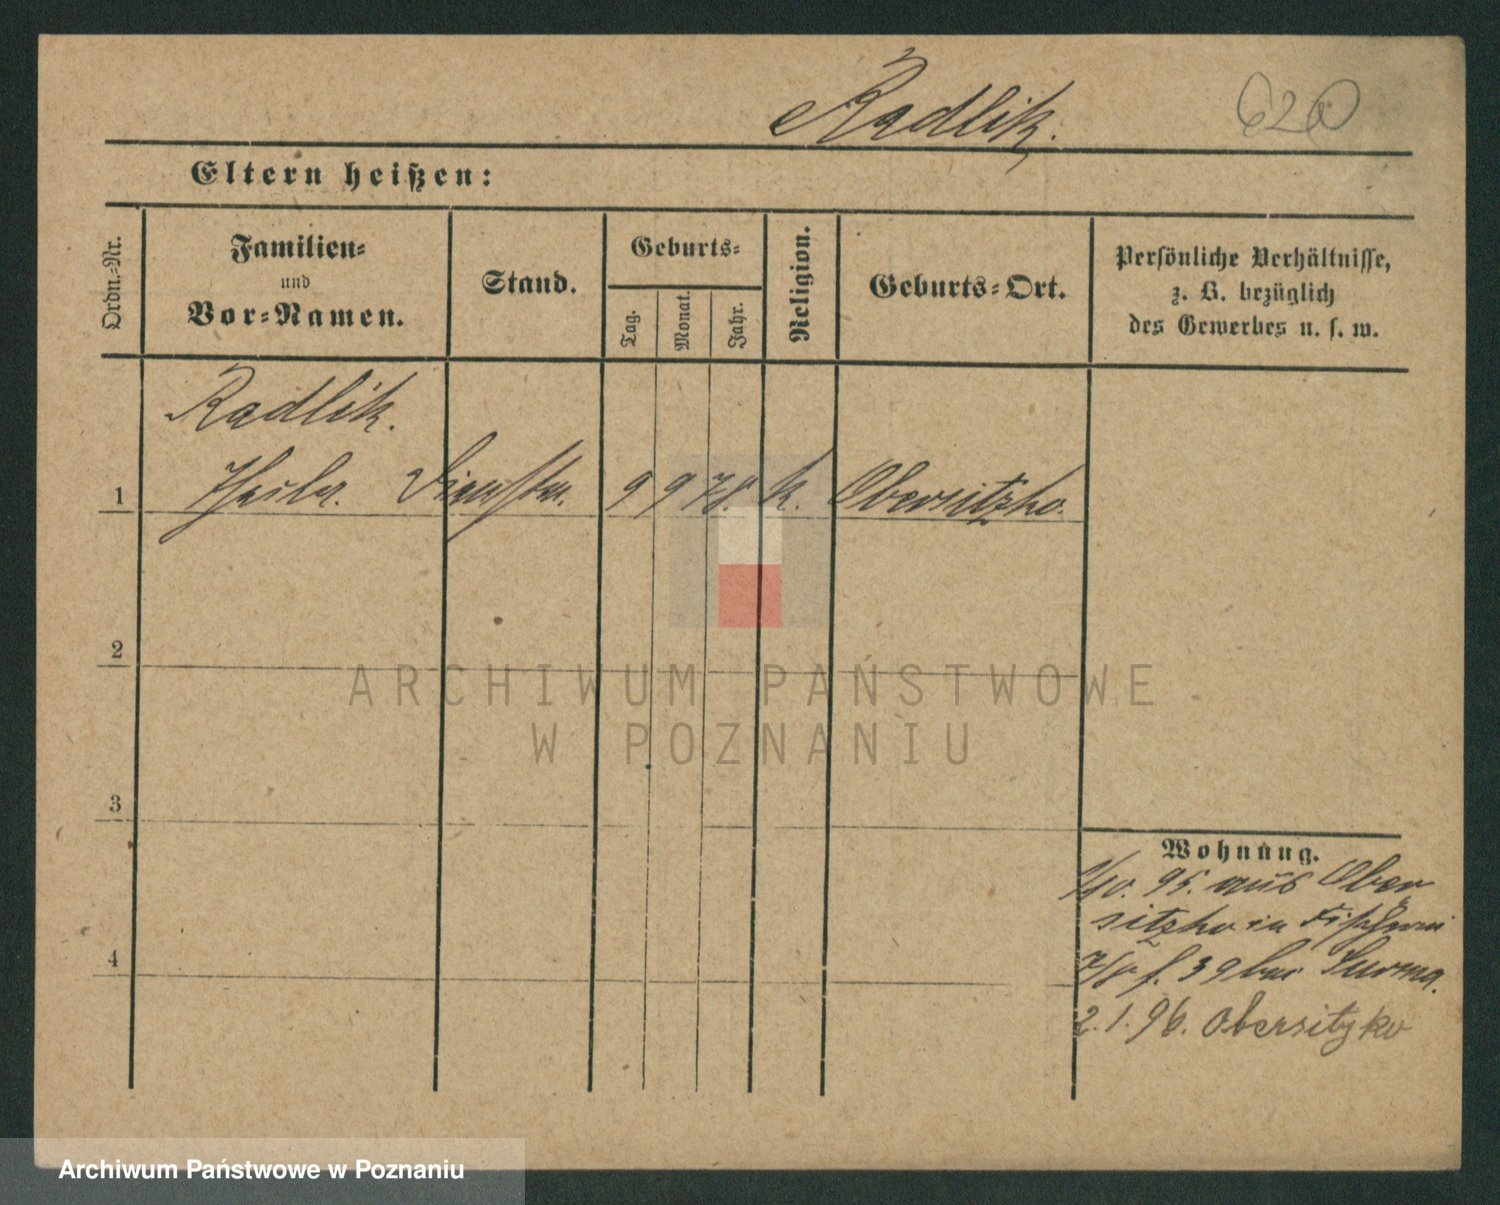 Radlik.
620
Eltern heißen:
Ordn.-Nr.
Familien-
und
Vor-Namen.
Stand.
Geburts-
Tag.
Monat.
Jahr.
Religion.
Geburts-Ort.
Persönliche Verhältnisse,
z. B. bezüglich
des Gewerbes u. s. w.
Radlik.
1 9 9 78. K. Obersitzko.
2
3
4
Wohnung.
1/10. 95. aus Ober
sitzko in
2.1.96. Obersitzko
ARCHIWUM PAŃSTWOWE
W POZNANIU
Archiwum Państwowe w Poznaniu